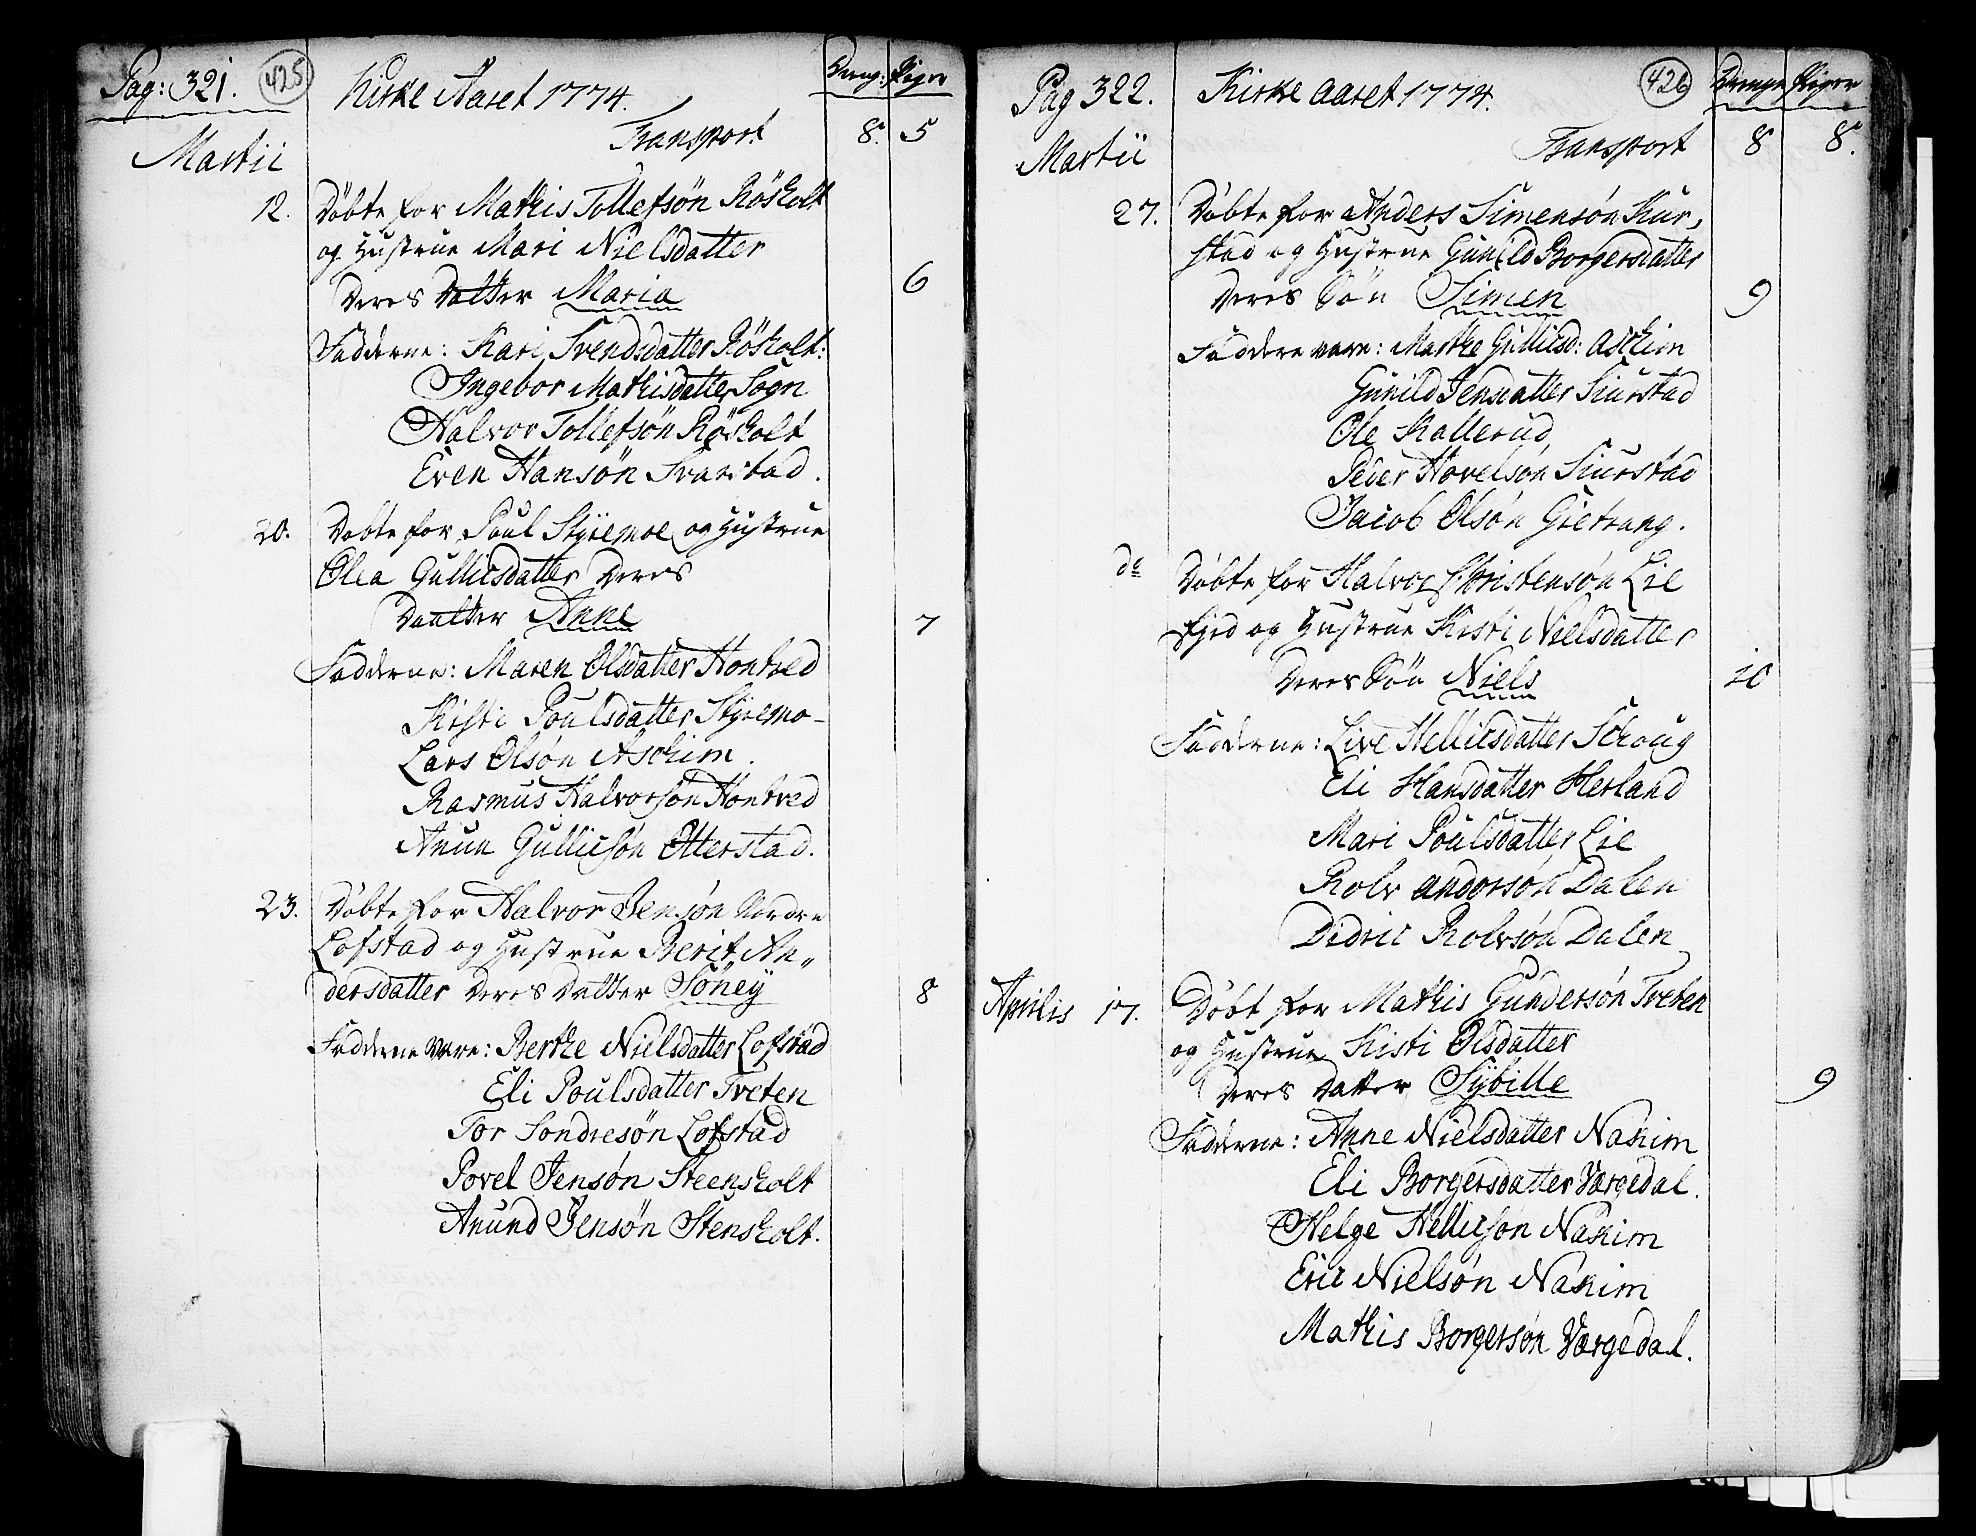 Pag: 321. 425 Kirke Aaret 1774. Dreng: Piger
Transport 8. 5
Martii
12. Døbte for Mathis Tollefsøn Røsholt
og Hustrue Mari Nielsdatter
Deres Datter Maria 6
Fadderne: Kari Svendsdatter Røsholt:
Ingebor Mathisdatter Sogn
Halvor Tollefsøn Røsholt
Even Hansøn Svarstad.
20. Døbte for Poul Styremoe og Hustrue
Olea Gullicsdatter Deres
Daatter Anne 7
Fadderne: Maren Olsdatter Hontved
Kisti Poulsdatter Styremo-
Lars Olsøn Aschim.
Rasmus Halvorsøn Hontved
Anun Gullicsøn Otterstad.
23. Døbte for Halvor Jensøn Nordre
Lofstad og Hustrue Berit An„
dersdatter Deres Datter Søney 8
Fadderne vare: Berthe Nielsdatter Lofstad
Eli Poulsdatter Tveten
Tor Sondresøn Lofstad
Povel Jensøn Steensholt
Anund Jensøn Stensholt.
Pag 322. Kirke Aaret 1774. 426 Drenge Piger
Transport 8 8.
Martii
27. Døbte for Anders Simensøn Siur,
stad og Hustrue Gunild Borgersdatter
Deres Søn Simen 9
Faddere vare: Marthe Gullicsd: Aschim
Gunild Jensdatter Siurstad
Ole Kallerud
Peder Hovelsøn Siurstad
Jacob Olsøn Gietrang.
do Døbte for Halvor Christensøn Lie
Ejed og Hustrue Kisti Nielsdatter
Deres Søn Niels 10
Fadderne: Live Hellicsdatter Schoug
Eli Hansdatter Herland
Mari Poulsdatter Lie
Rolv Andorsøn Dalen
Didric Rolvsøn Dalen
Aprilis 17. Døbt for Mathis Gundersøn Tveten
og Hustrue Kisti Olsdatter
Deres Datter Sÿbille 9
Fadderne: Anne Nielsdatter Nasim
Eli Borgersdatter Værgedal.
Helge Hellicsøn Nasim
Eric Nielsøn Nasim
Mathis Borgersøn Værgedal.